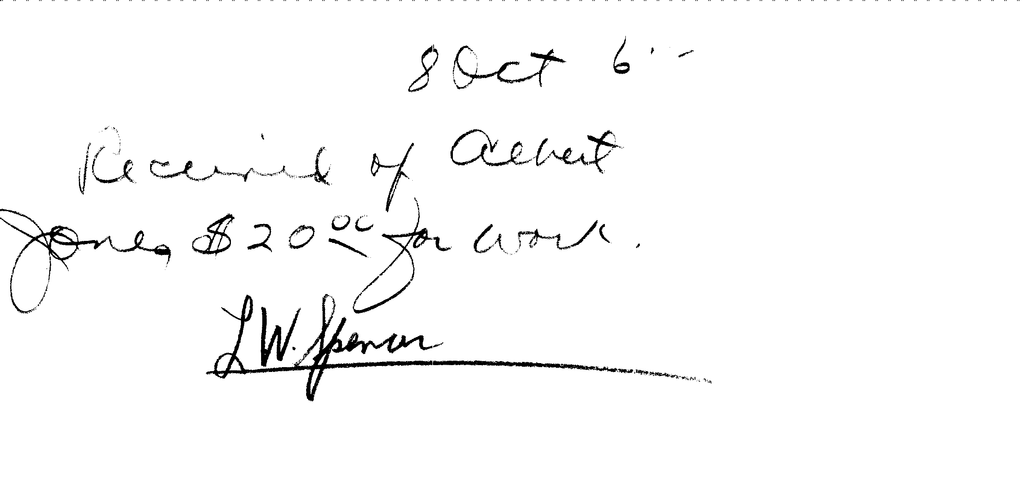 8 Oct 6
Received of Albert
Jones $20.00 for work.
L W. Spencer